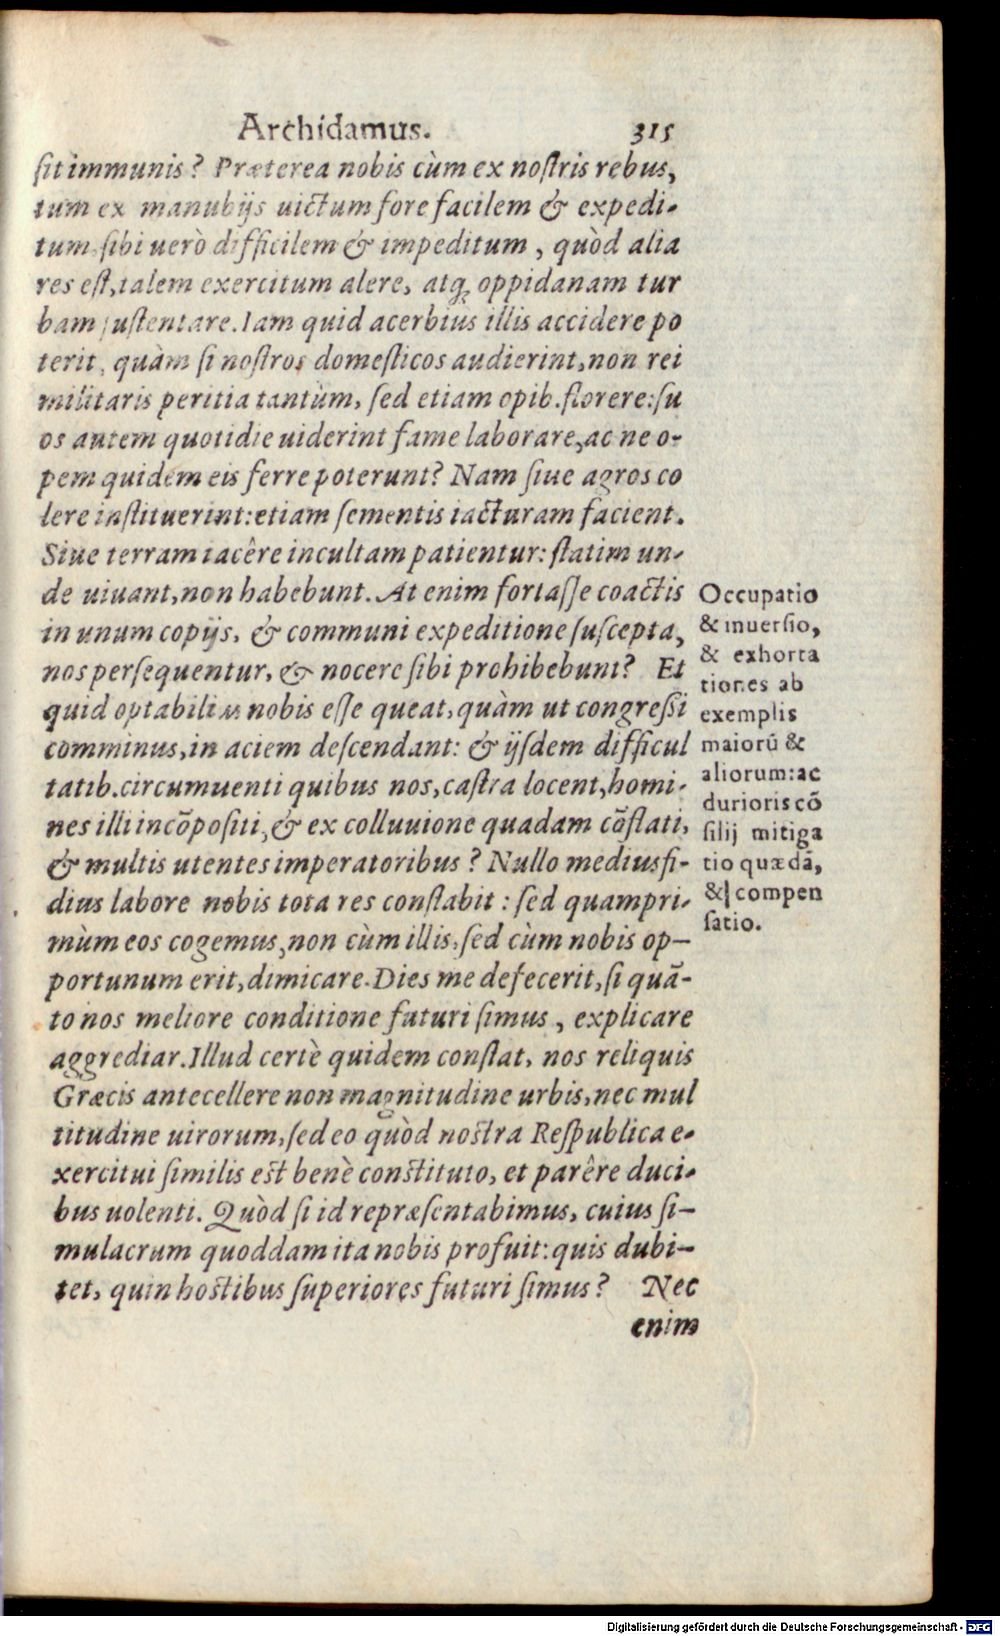 Archidamus. 315
ſit immunis? Præterea nobis cùm ex noſtris rebus,
tum ex manubijs uictum fore facilem & expedi-
tum, ſibi uerò difficilem & impeditum, quòd alia
res eſt, talem exercitum alere, atq; oppidanam tur
bam ſuſtentare. Iam quid acerbius illis accidere po
terit, quàm ſi noſtros domeſticos audierint, non rei
militaris peritia tantùm, ſed etiam opib. florere: ſu
os autem quotidie uiderint fame laborare, ac ne o-
pem quidem eis ferre poterunt? Nam ſiue agros co
lere inſtituerint: etiam ſementis iacturam facient.
Siue terram iacêre incultam patientur: ſtatim un-
de uiuant, non habebunt. At enim fortaſſe coactis
in unum copijs, & communi expeditione ſuſcepta,
nos perſequentur, & nocere ſibi prohibebunt? Et
quid optabilius nobis eſſe queat, quàm ut congreſſi
comminus, in aciem deſcendant: & ijſdem difficul
tatib. circumuenti quibus nos, caſtra locent, homi-
nes illi incōpoſiti, & ex colluuione quadam cōflati,
& multis utentes imperatoribus? Nullo mediusfi-
dius labore nobis tota res conſtabit: ſed quampri-
mùm eos cogemus, non cùm illis, ſed cùm nobis op-
portunum erit, dimicare. Dies me defecerit, ſi quā-
to nos meliore conditione futuri ſimus, explicare
aggrediar. Illud certè quidem conſtat, nos reliquis
Græcis antecellere non magnitudine urbis, nec mul
titudine uirorum, ſed eo quòd noſtra Reſpublica e-
xercitui ſimilis eſt benè conſtituto, et parêre duci-
bus uolenti. Quòd ſi id repræſentabimus, cuius ſi-
mulacrum quoddam ita nobis profuit: quis dubi-
tet, quin hoſtibus ſuperiores futuri ſimus? Nec
enim
Occupatio
& inuerſio,
& exhorta
tiones ab
exemplis
maiorū &
aliorum: ac
durioris cō
ſilij mitiga
tio quædā,
& compen
ſatio.
Digitalisierung gefördert durch die Deutsche Forschungsgemeinschaft - DFG